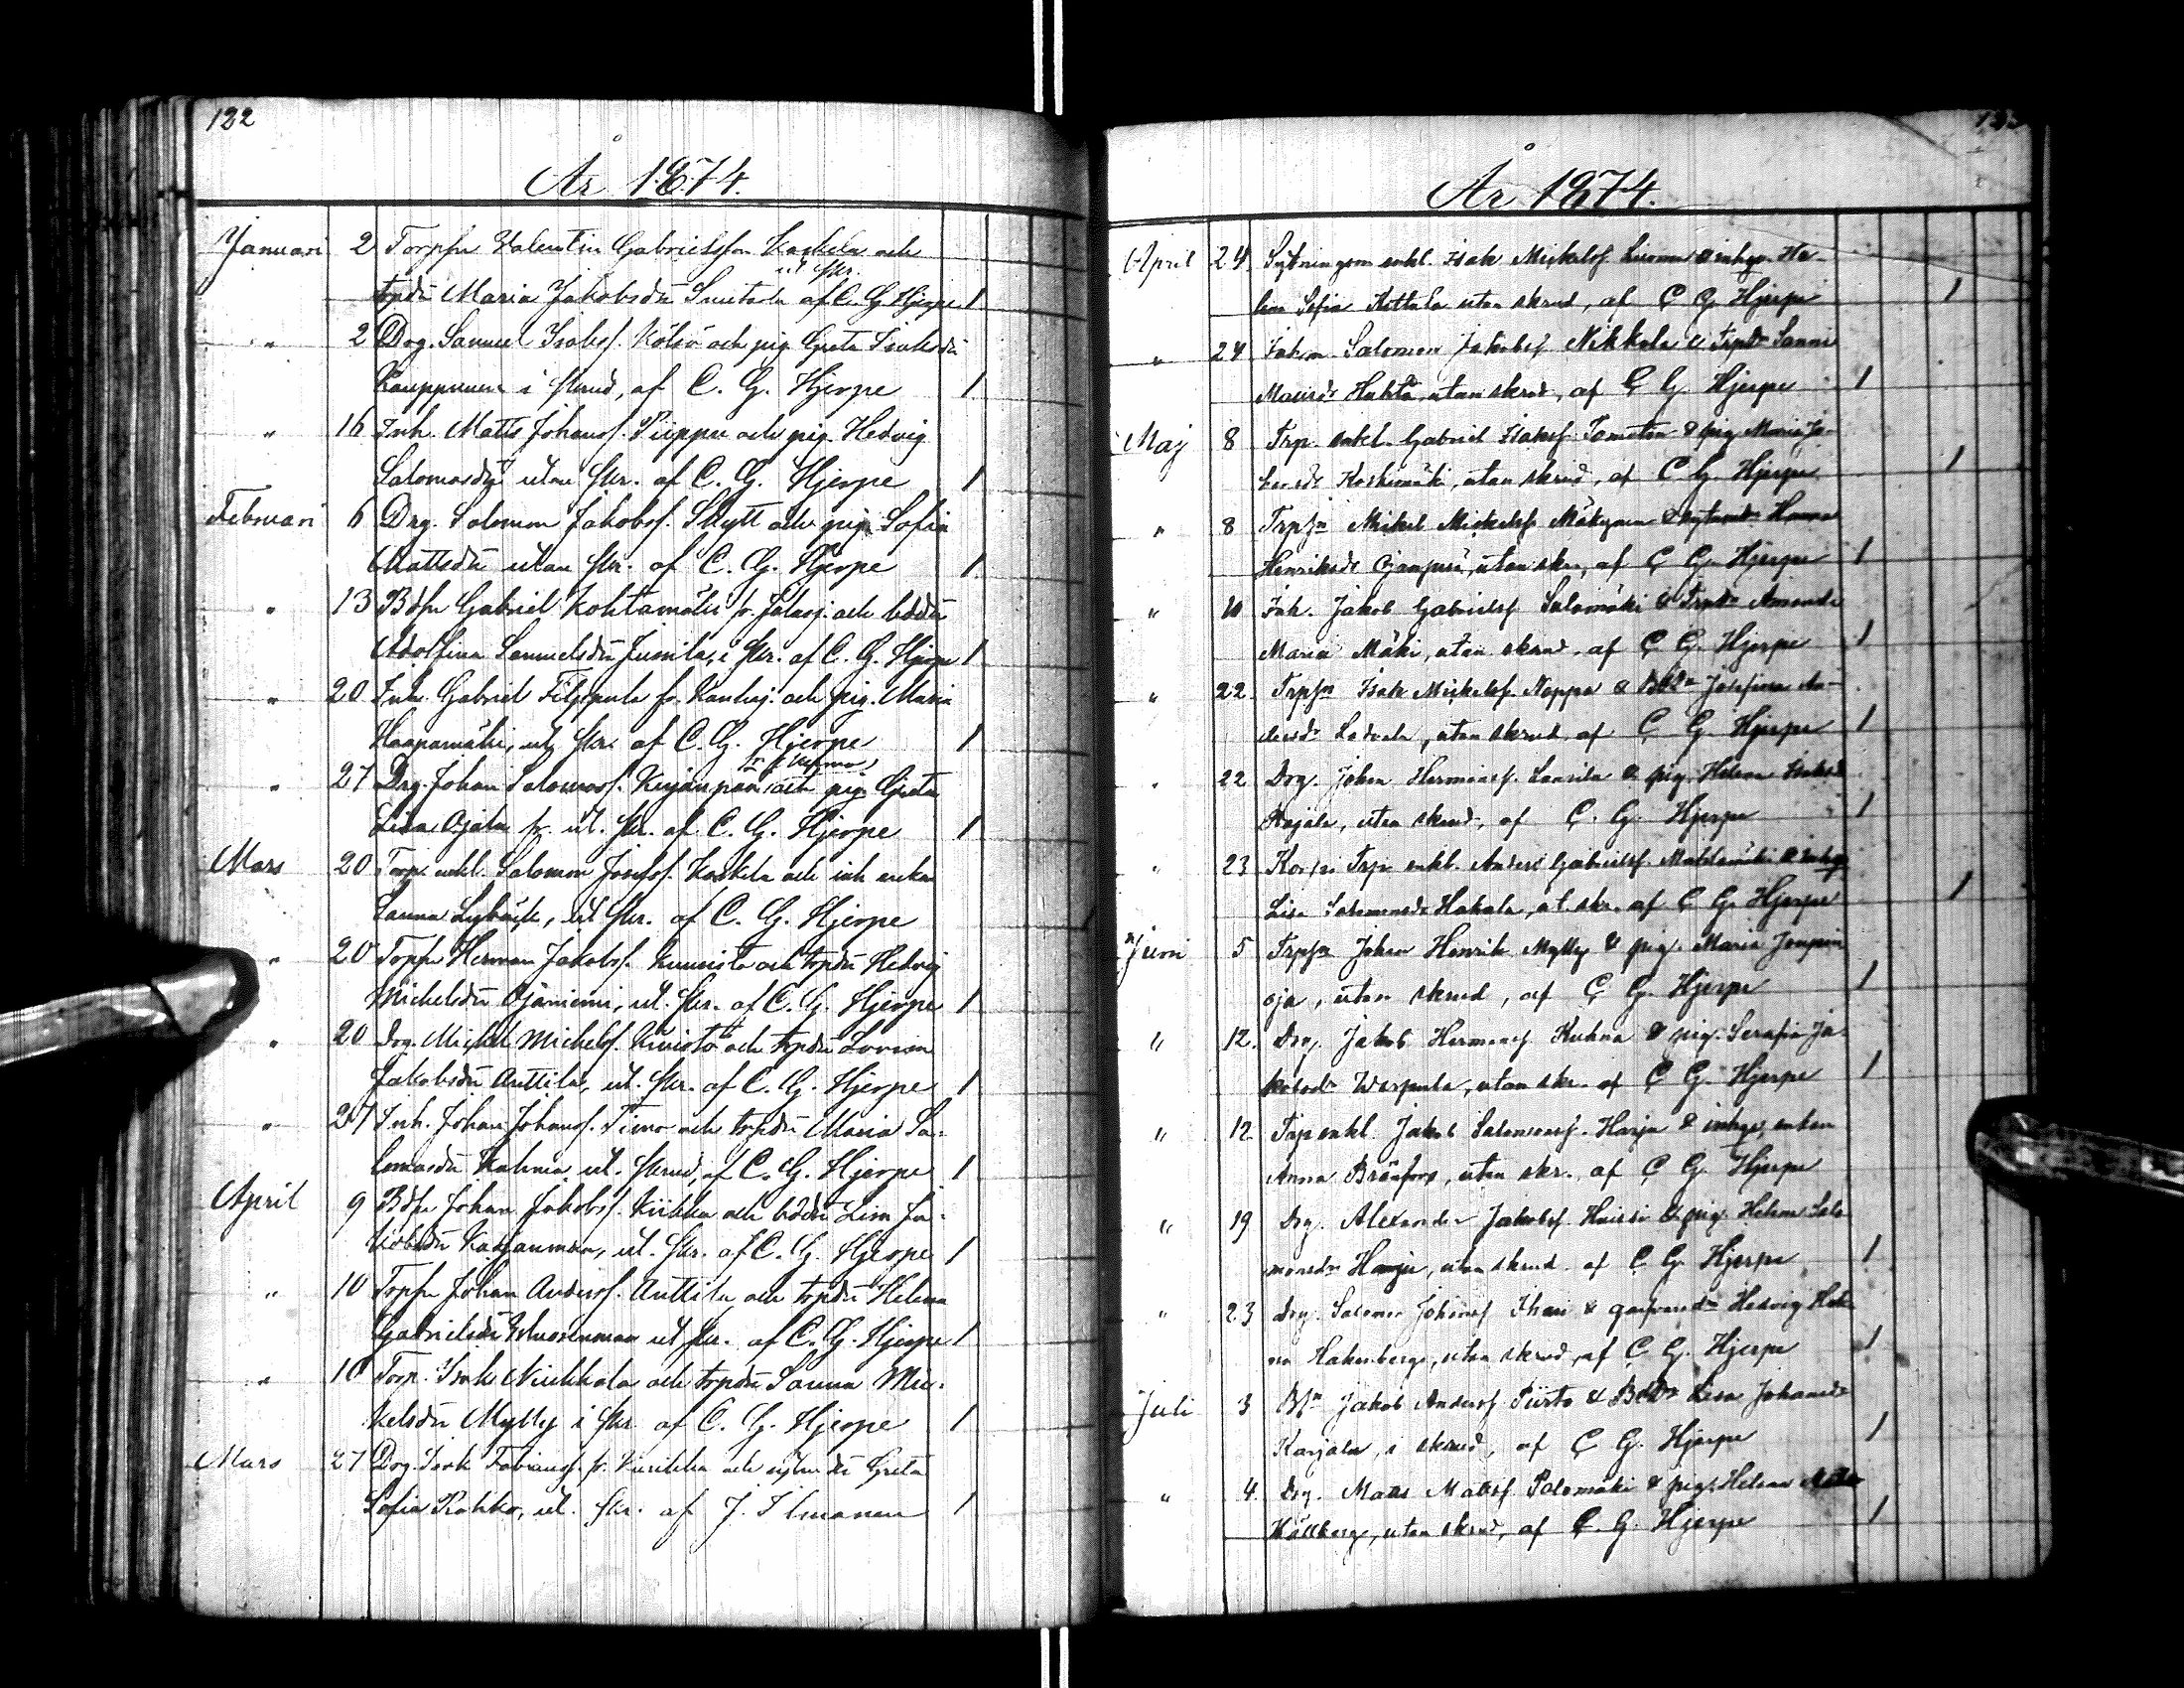 122
År 1874.
Januari 2 Torpsn Valentin Gabrielsson Koskela och
ut skr.
tpdr Maria Jakobsdr Smitsda af C. G. Hjerpe 1
" 2 Drg. Samuel Isaks. och pig. Greta Isaksdr
Kauppinen i skrud, af C. G. Hjerpe 1
" 16 Inh. Matts Johans. Piippu och pig. Hedvig
Salomosdr utan skr. af C. G. Hjerpe 1
Februari 6 Drg. Salomon Jakobs. Skytt och pig. Sofia
Mattsdr utan skr. af C. G. Hjerpe 1
" 13 Bdsn Gabriel Kohtamäki fr. Jalasj. och bddr
Adolfina Samuelsdr Jussila, i skr. af C. G. Hjerpe 1
" 20 Inh. Gabriel Filppula fr. Kauhaj. och pig. Maria
Haapamäki, ut. skr. af C. G. Hjerpe 1
" 27 Drg. Johan Salomos. och pig. Greta
Lisa Ojala fr. ut. skr. af C. G. Hjerpe 1
Mars 20 Torp. enkl. Salomon Josefs. Koskela och inh. enkan
Sanna Lybäck, ut skr. af C. G. Hjerpe
" 20 Torpsn Herman Jakobs. Kunnisto och tpdr Hedvig
Michelsdr Ojaniemi, ut. skr. af C. G. Hjerpe 1
" 20 Drg. Michel Michels. Kivistö och tpdr Lovisa
Jakobsdr Anttila, ut. skr. af C. G. Hjerpe 1
" 27 Inh. Johan Johans. Timo och tpdr Maria Sa-
lomosdr ut. skrud, af C. G. Hjerpe 1
April 9 Bdsn Johan Jakobs. Kiikka och bddr Lisa Ja-
kobsdr ut. skr. af C. G. Hjerpe 1
" 10 Torpsn Johan Anders. Anttila och tpdr Helena
Gabrielsdr ut skr. af C. G. Hjerpe 1
" 10 Torp. Isak Nikkola och tpdr Sanna Mic-
kelsdr Mylly i skr. af C. G. Hjerpe 1
Mars 27 Drg. Isak Fabians. fr. Kurikka och Greta
Sofia Rahko, ut. skr. af J. Ilmanen 1
År 1874.
April 24 enkl. Isak Mickelss. Luoma & inhys. He-
lena Sofia Kettula utan skrud, af C G Hjerpe 1
" 24 Salomon Jakobss. Nikkola & Trpdr Sanna
Mauridr Huhta, utan skrud, af C G. Hjerpe 1
Maj 8 Trp. enkl. Gabriel Isakss. & pig. Maria Ja-
Koskimäki, utan skrud, af C G. Hjerpe 1
" 8 Trpsn Mikel Mickelss. Mäkynen &
Henriksdr utan skr., af C G. Hjerpe 1
" 10 Inh. Jakob Gabrielss. Salomäki & Trpdr Amanda
Maria Mäki, utan skrud, af C G. Hjerpe 1
" 22. Trpsn Isak Mickelss. Noppa & Bddr Josefina An-
dersdr Ladvala, utan skrud, af C G. Hjerpe 1
" 22 Drg. Johan Hermanss. Laurila & pig. Helena Isaksdr
Rajala, utan skrud, af C. G. Hjerpe 1
" 23 Trp. enkl. Anders Gabrielss. & inhys.
Lisa Salomonsdr Hakala, ut. skr. af C G. Hjerpe 1
Juni 5 Trpsn Johan Henrik Mylly & pig. Maria Joupin
oja, utan skrud, af C G. Hjerpe 1
" 12. Drg. Jakob Hermanss. Kuhna & pig. Serafia Ja-
kobsdr Warpula, utan skr. af C G. Hjerpe 1
" 12. Trp enkl. Jakob Salomonss. Harja & inhys. enkan
Anna utan skr. af C G. Hjerpe
" 19 Drg. Alexander Jakobss. & pig. Helena Salo
monsdr Harju, utan skrud. af C G. Hjerpe 1
" 23 Drg. Salomon Johanss. & Hedvig
utan skrud, af C. G. Hjerpe 1
Juli 3 Bsn Jakob Anderss. Piirto & Bddr Lisa Johansdr
Karjala, i skrud, af C G. Hjerpe 1
" 4. Drg. Matts Mattss. Palomäki & pig. Helena
Hällberg, utan skrud, af C. G. Hjerpe 1